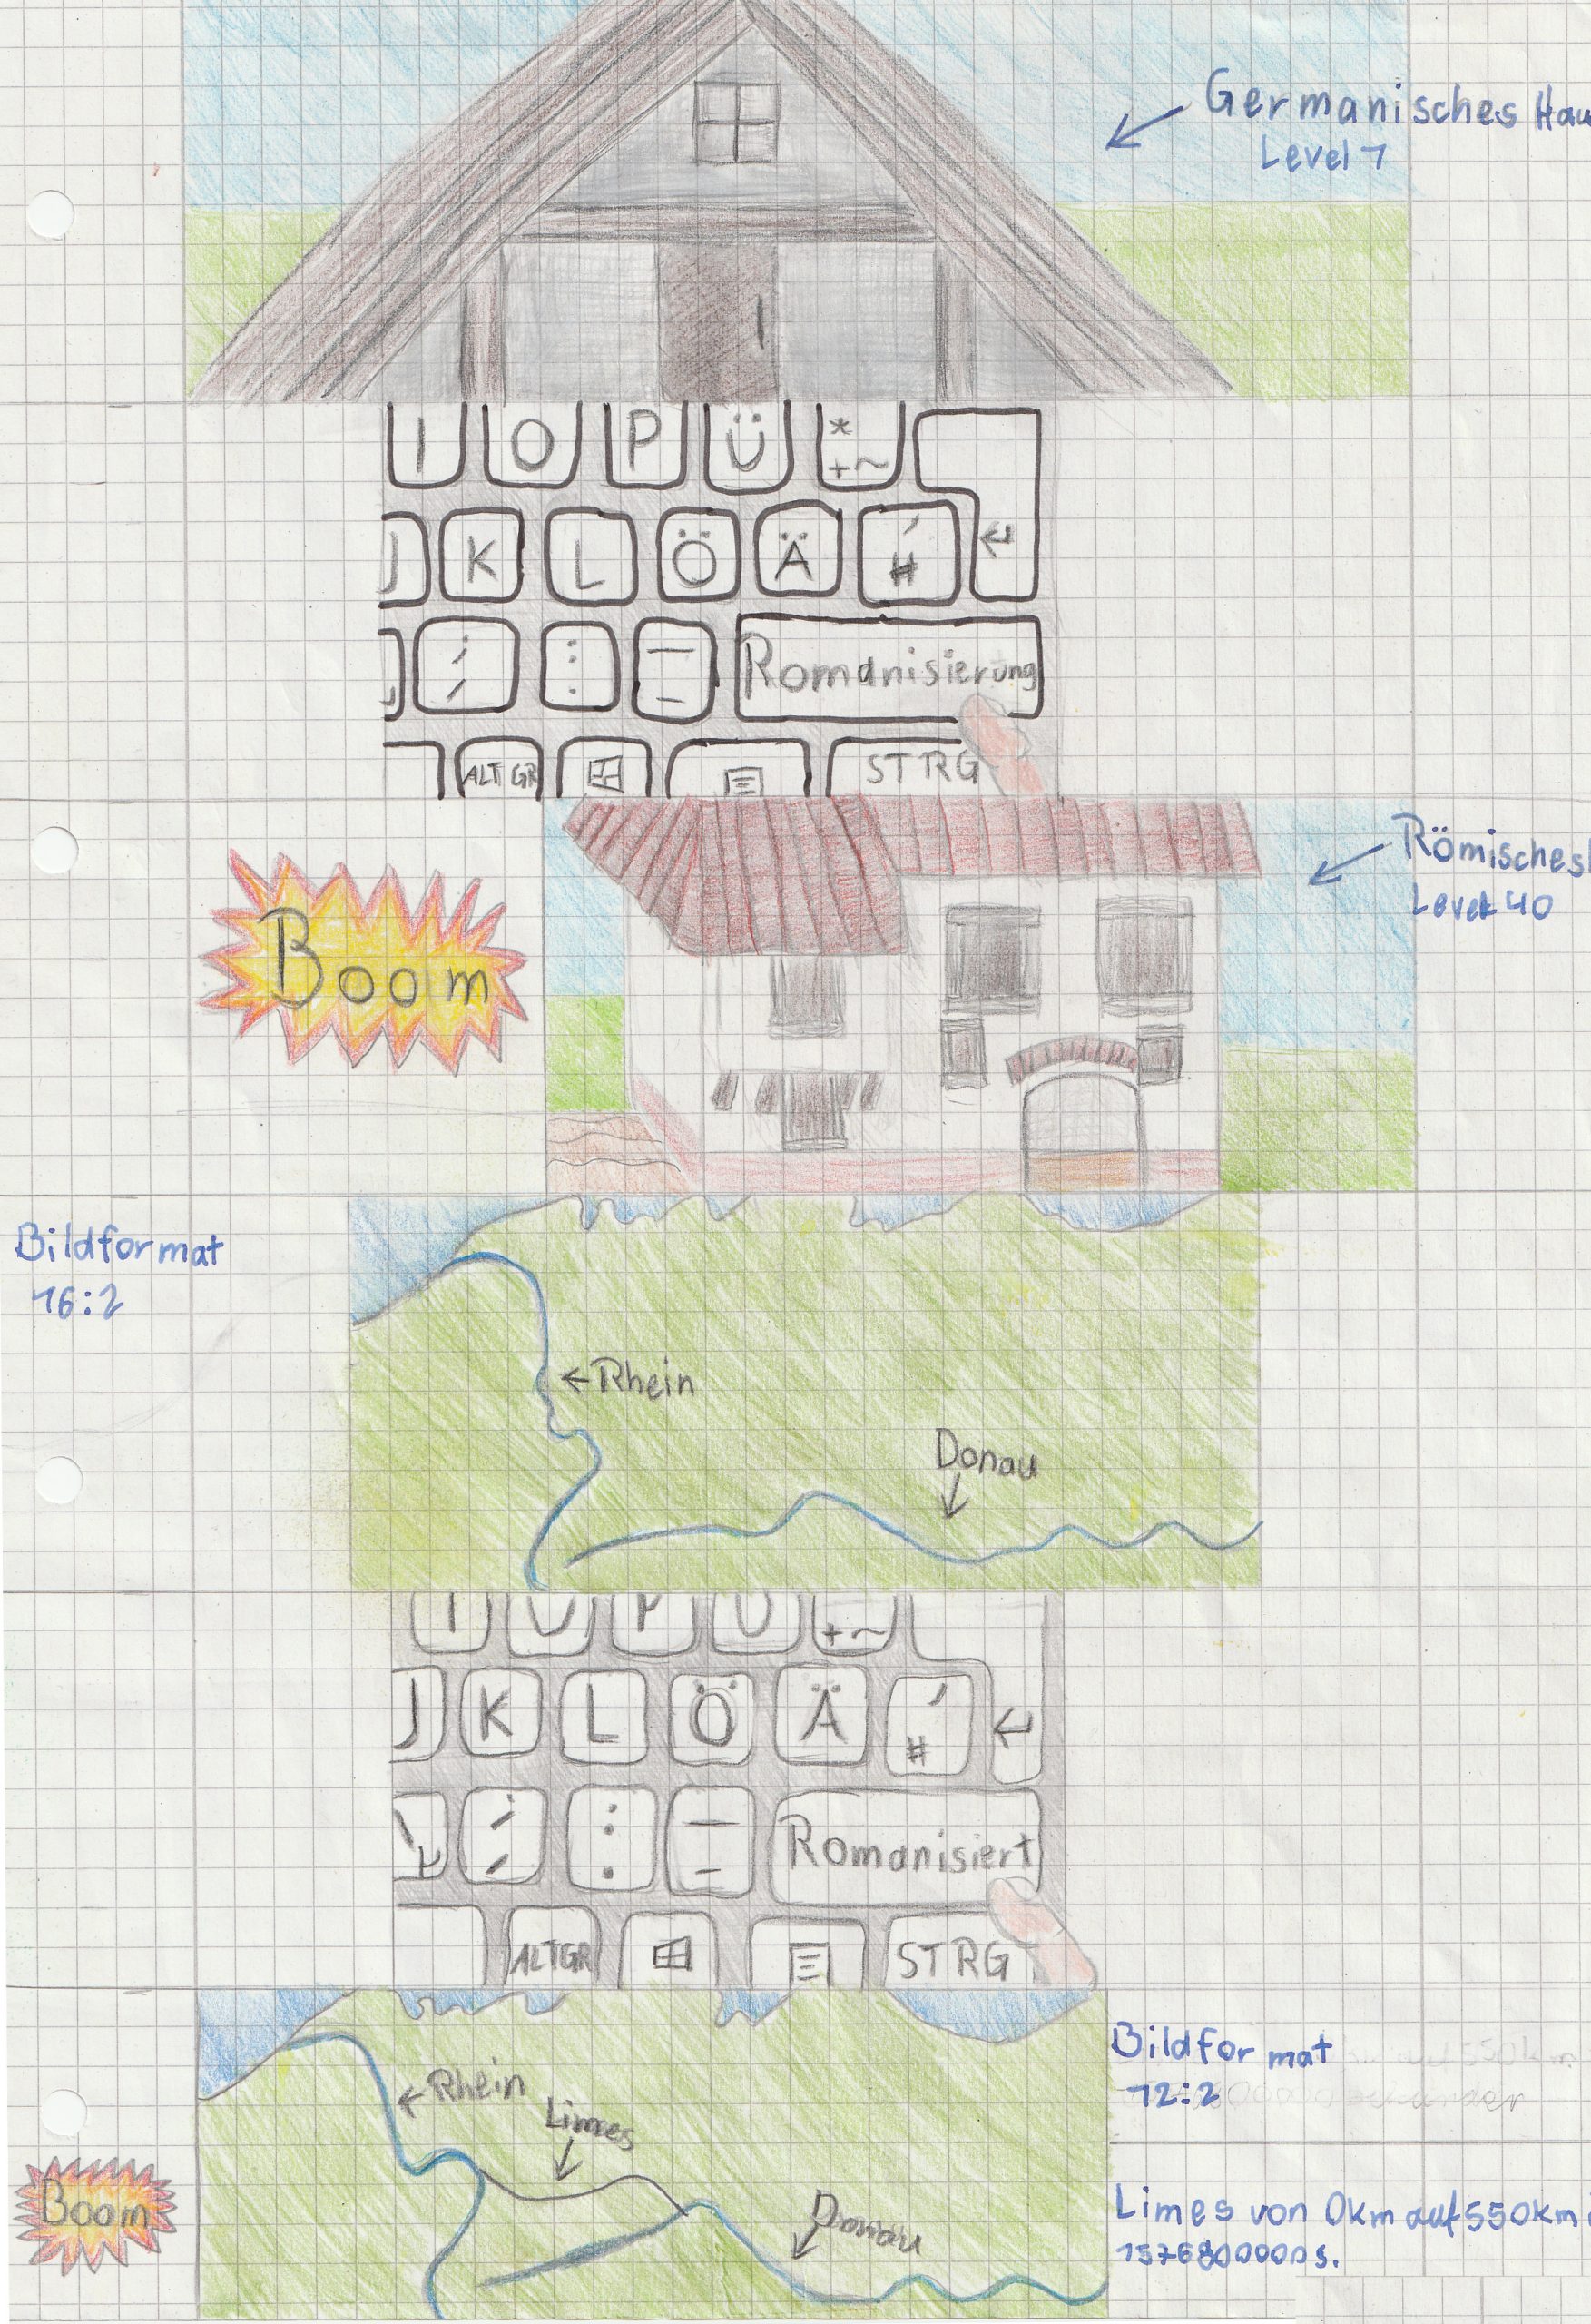 Germanisches Hau
Level 1
I O P Ü * + ~
J K L Ö Ä ' # ↵
; , : . — _ Romanisierung
ALT GR STRG
Boom
Römisches
Level 40
Bildformat
16:2
← Rhein
Donau
+ ~
J K L Ö Ä ' # ↵
: . — _ Romanisiert
ALTGR STRG
Bildformat
12:2
← Rhein
Limes
Donau
Boom
Limes von 0km auf 550km